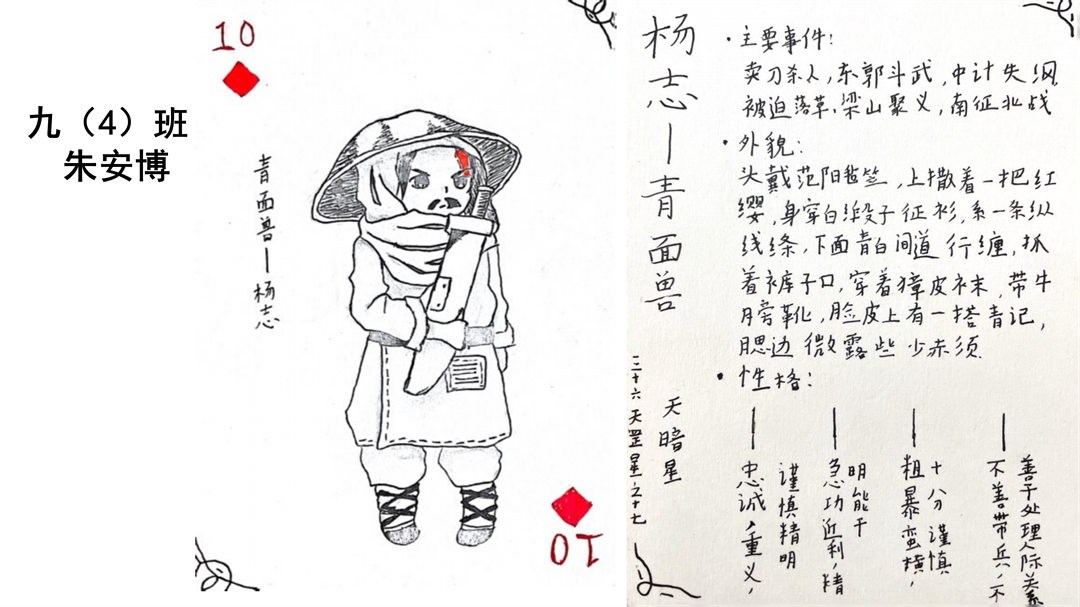 九（4）班
朱安博
10
青面兽—杨志
10
杨志—青面兽
天暗星
三十六天罡星之十七
·主要事件：
卖刀杀人，东郭斗武，中计失纲
被迫落草，梁山聚义，南征北战
·外貌：
头戴范阳毡笠，上撒着一把红
缨，身穿白缎子征衫，系一条纵
线绦，下面青白间道行缠，抓
着裤子口，穿着獐皮袜，带牛
膀靴，脸皮上有一搭青记，
腮边微露些少赤须
·性格：
—忠诚，重义，
谨慎精明
—急功近利，精
明能干
—粗暴蛮横，
十分谨慎
—不善带兵，不
善于处理人际关系